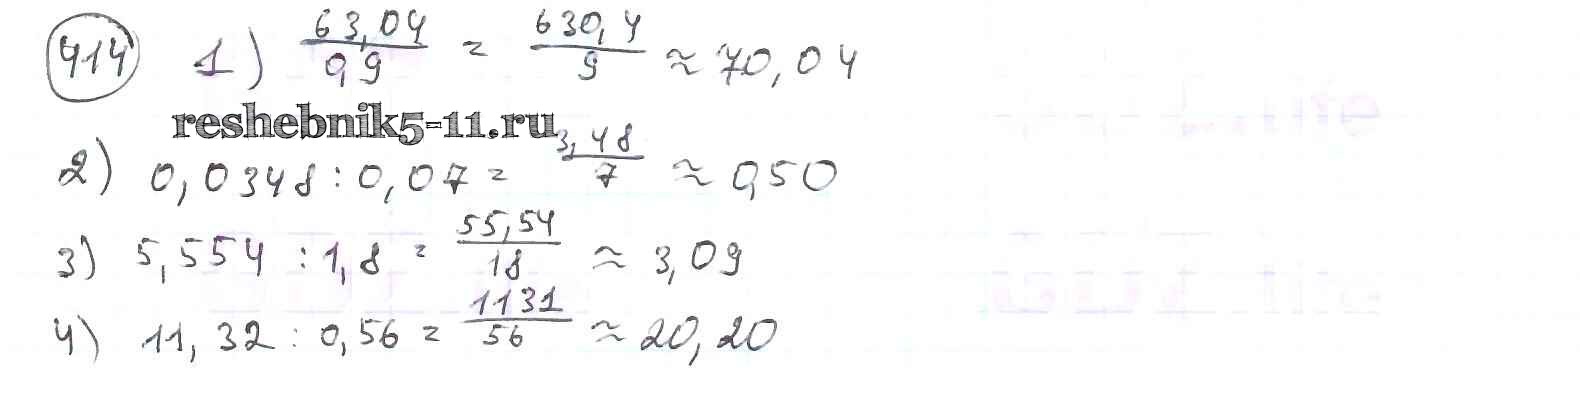 414 1) 63,04/0,9 = 630,4/9 ≈ 70,04
reshebnik5-11.ru
2) 0,0348 : 0,07 = 3,48/7 ≈ 0,50
3) 5,554 : 1,8 = 55,54/18 ≈ 3,09
4) 11,32 : 0,56 = 1131/56 ≈ 20,20